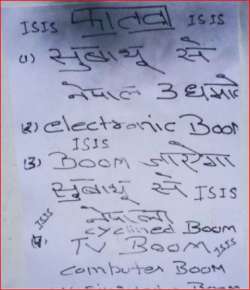 ISIS फातवा ISIS
(1) सुबाथू से
नेपाल 3 धमाके
(2) electronic Boom
ISIS
(3) BOOM जाऐगा
सुबाथू से ISIS
नेपाल
ISIS cyclined Boom
(4) TV BOOM ISIS
computer BOOM